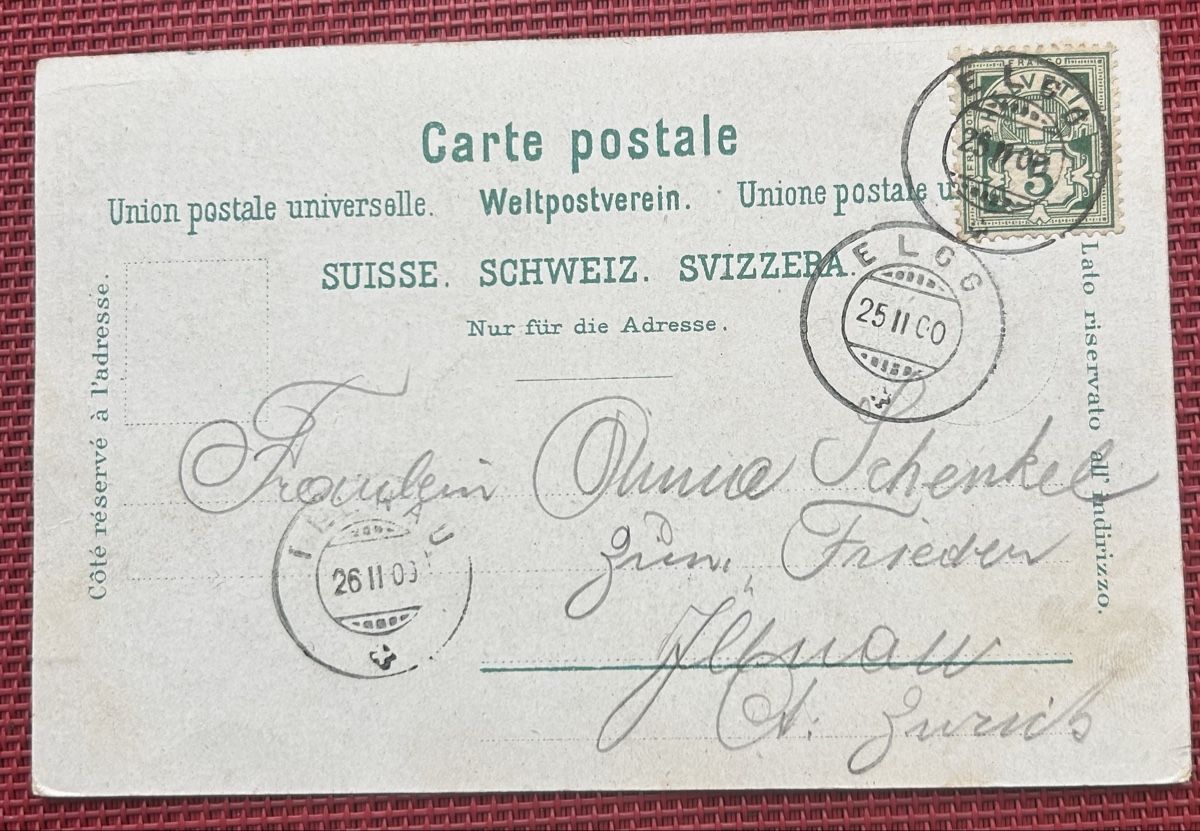 Carte postale
Union postale universelle. Weltpostverein. Unione postale
SUISSE. SCHWEIZ. SVIZZERA.
Nur für die Adresse.
Côté réservé à l'adresse.
Lato riservato all' indirizzo.
FRANCO
HELVETIA
5
ELGG
25 II 00
ELGG
25 II 00
Fräulein Anna Schenkel
Zum Frieden
Illnau
Ct. Zürich
26 II 00